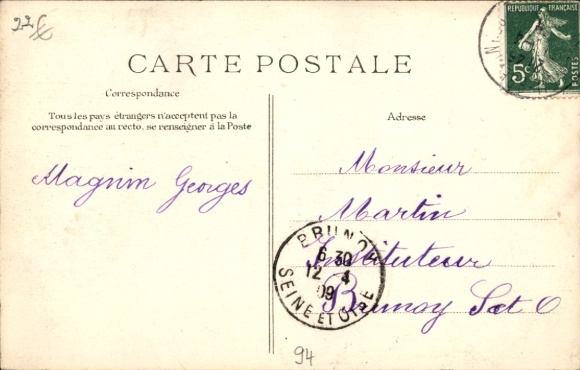 22€
REPUBLIQUE FRANÇAISE
5c
POSTES
CARTE POSTALE
Correspondance
Tous les pays étrangers n'acceptent pas la
correspondance au recto. se renseigner à la Poste
Adresse
Magnin Georges
Monsieur
Martin
Instituteur
Brunoy S et O
BRUNOY
6 30
12 4
09
SEINE ET OISE
94